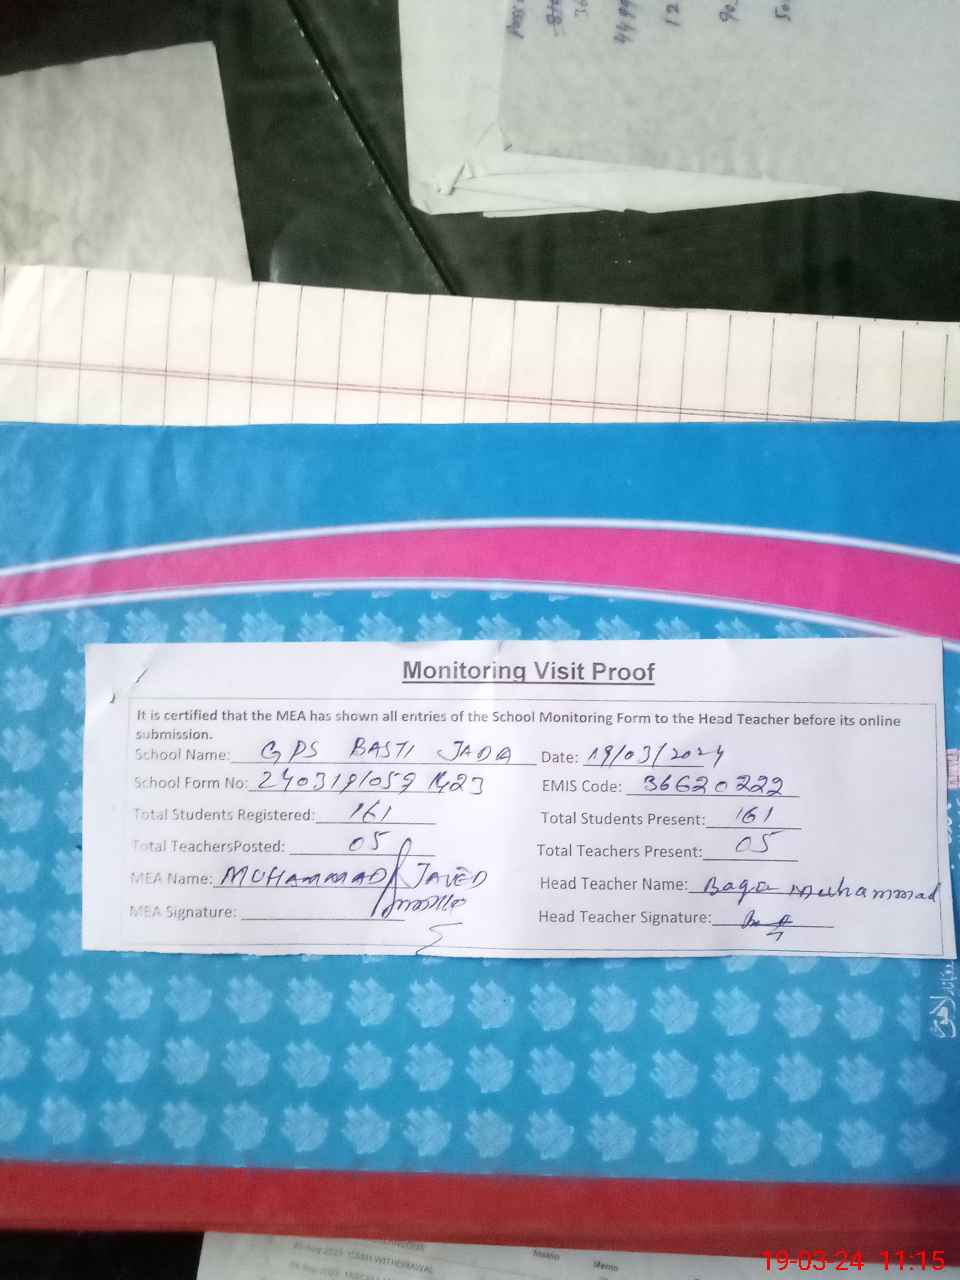 44
12
Monitoring Visit Proof
It is certified that the MEA has shown all entries of the School Monitoring Form to the Head Teacher before its online
submission.
School Name: GPS BASTI JADA Date: 19/03/2024
School Form No: EMIS Code: 36620222
Total Students Registered: 161 Total Students Present: 161
Total TeachersPosted: 05 Total Teachers Present: 05
MEA Name: MUHAMMAD JAVED Head Teacher Name: Muhammad
MEA Signature: Head Teacher Signature:
لاھور
CASH WITHDRAWAL
19-03-24 11:15